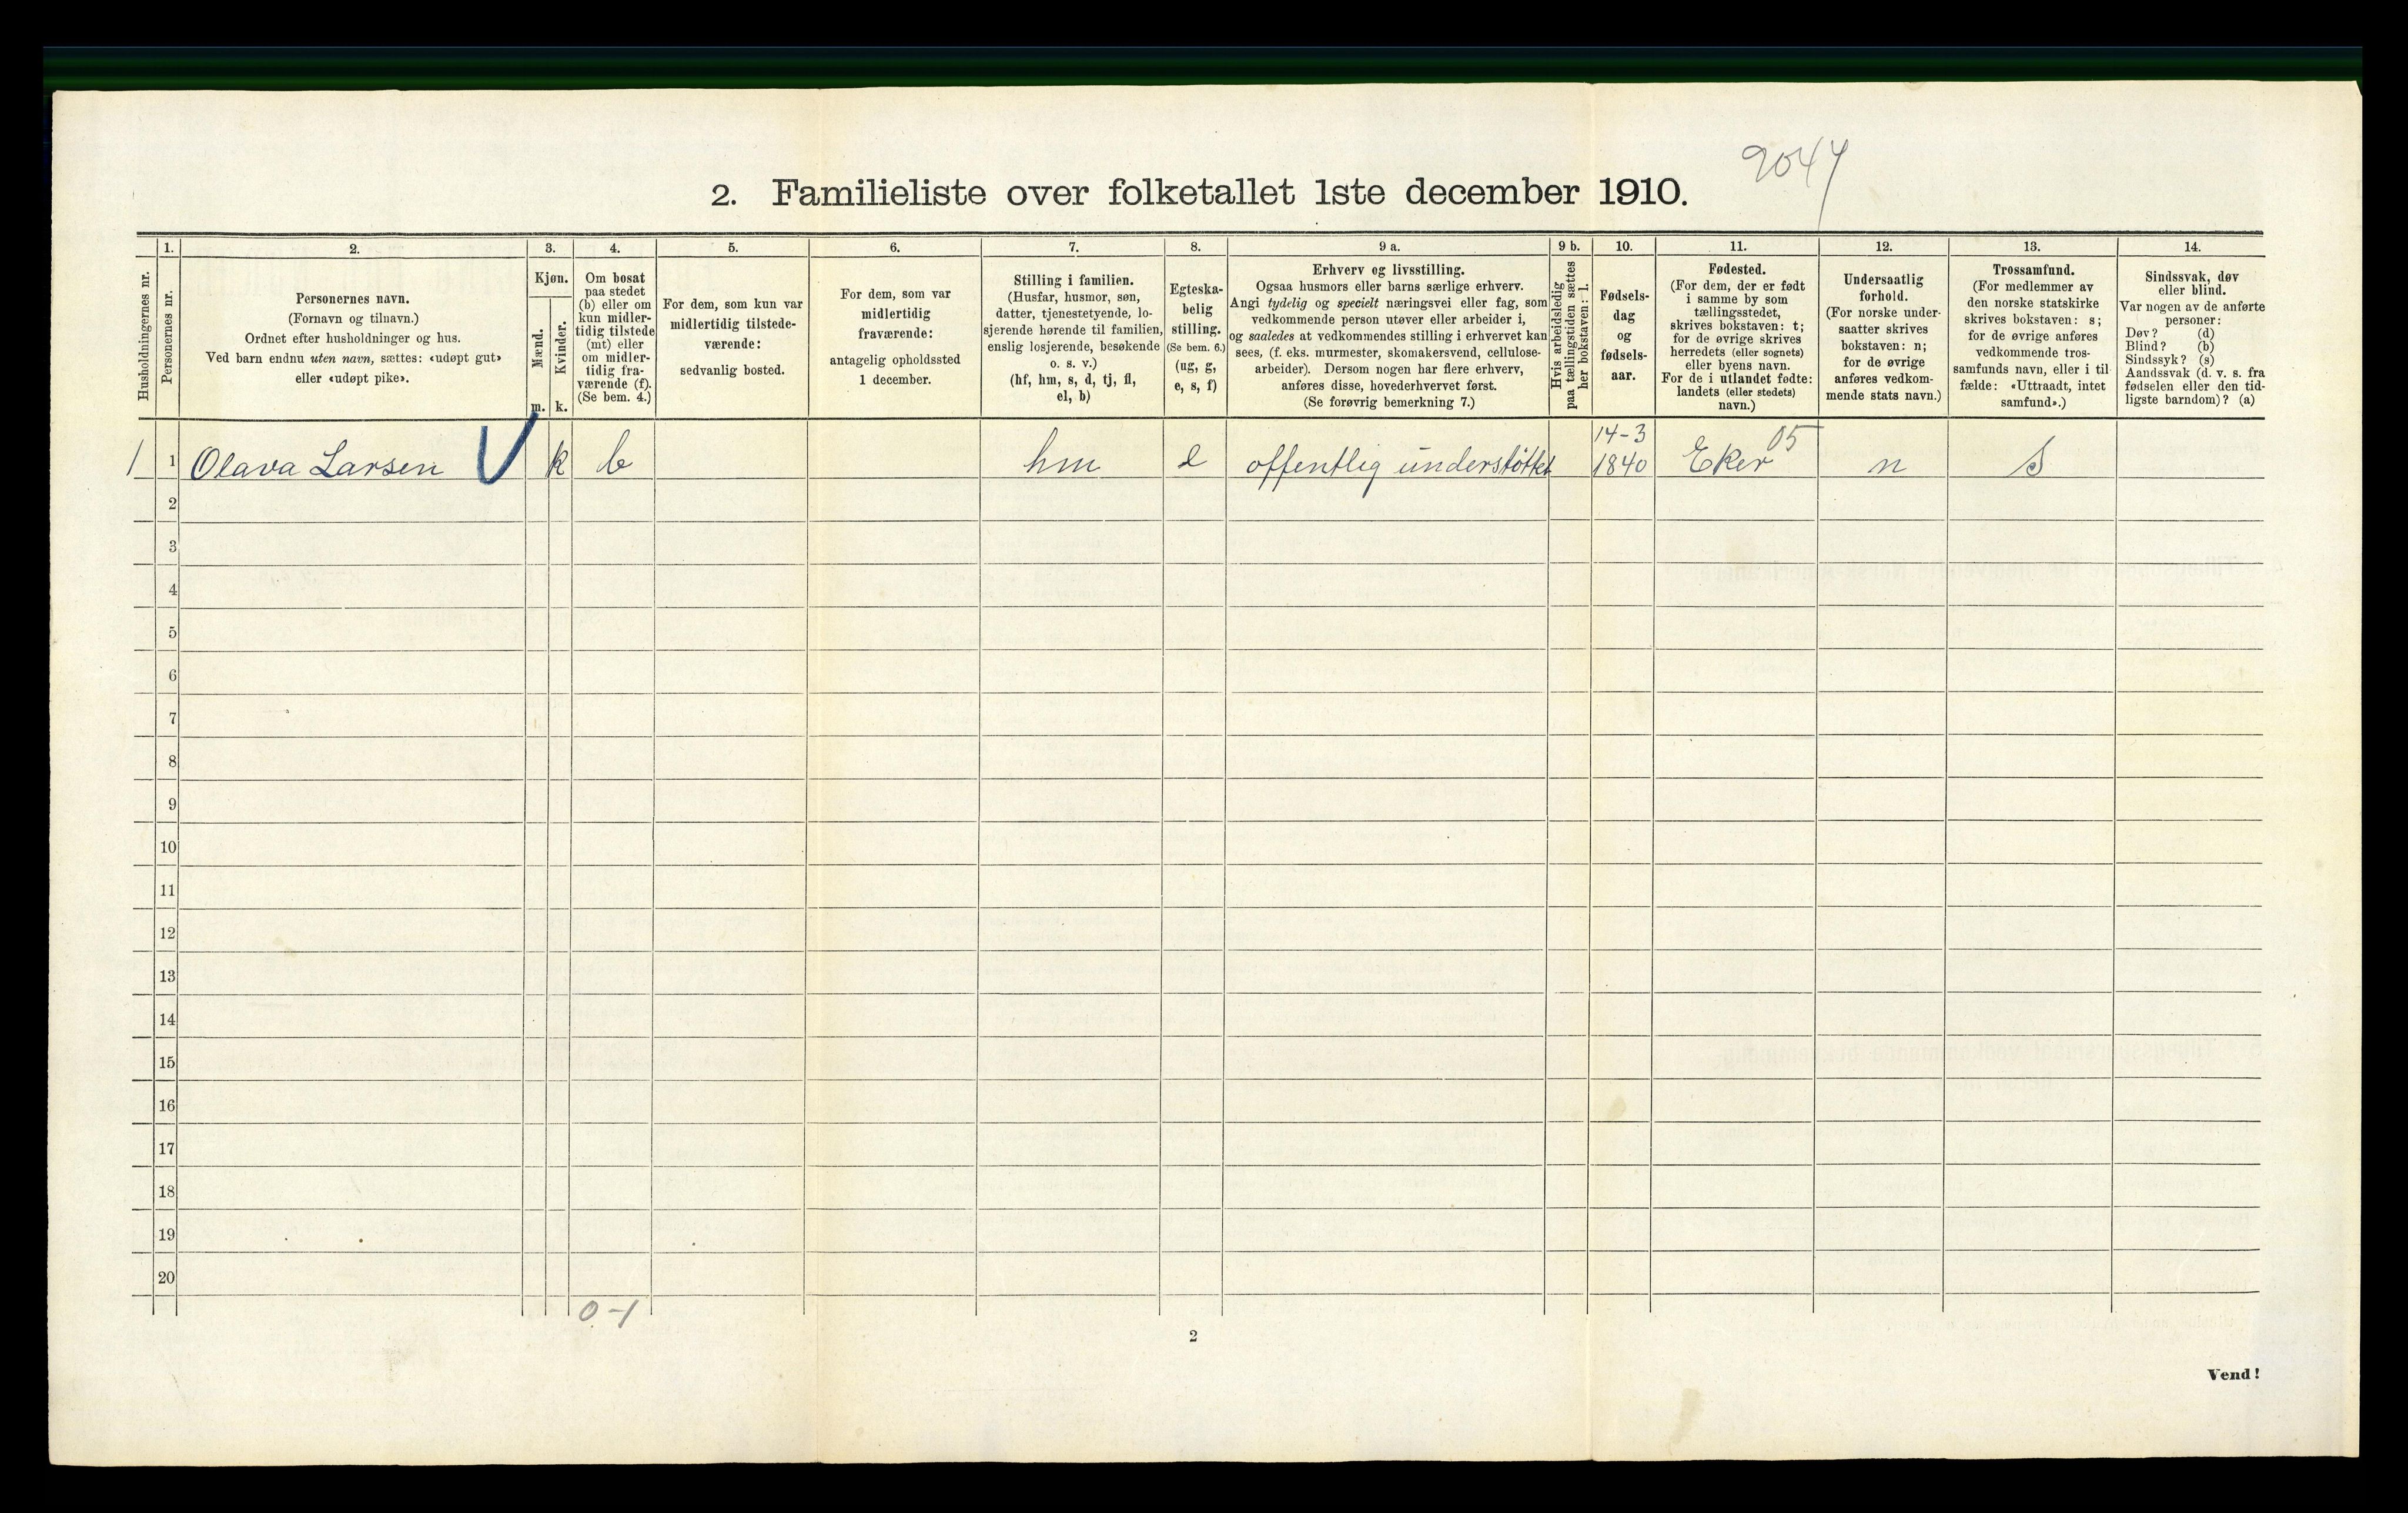 9044
2. Familieliste over folketallet 1ste december 1910.
Husholdningernes nr.
1.
Personernes nr.
2.
Personernes navn.
(Fornavn og tilnavn.)
Ordnet efter husholdninger og hus.
Ved barn endnu uten navn, sættes: «udøpt gut»
eller «udøpt pike».
3.
Kjøn.
Mænd.
m.
Kvinder.
k.
4.
Om bosat
paa stedet
(b) eller om
kun midler-
tidig tilstede
(mt) eller
om midler-
tidig fra-
værende (f).
(Se bem. 4.)
5.
For dem, som kun var
midlertidig tilstede-
værende:
sedvanlig bosted.
6.
For dem, som var
midlertidig
fraværende:
antagelig opholdssted
1 december.
7.
Stilling i familien.
(Husfar, husmor, søn,
datter, tjenestetyende, lo-
sjerende hørende til familien,
enslig losjerende, besøkende
o. s. v.)
(hf, hm, s, d, tj, fl,
el, b)
8.
Egteska-
belig
stilling.
(Se bem. 6.)
(ug, g,
e, s, f)
9 a.
Erhverv og livsstilling.
Ogsaa husmors eller barns særlige erhverv.
Angi tydelig og specielt næringsvei eller fag, som
vedkommende person utøver eller arbeider i,
og saaledes at vedkommendes stilling i erhvervet kan
sees, (f. eks. murmester, skomakersvend, cellulose-
arbeider). Dersom nogen har flere erhverv,
anføres disse, hovederhvervet først.
(Se forøvrig bemerkning 7.)
9 b.
Hvis arbeidsledig
paa tællingstiden sættes
her bokstaven: l.
10.
Fødsels-
dag
og
fødsels-
aar.
11.
Fødested.
(For dem, der er født
i samme by som
tællingsstedet,
skrives bokstaven: t;
for de øvrige skrives
herredets (eller sognets)
eller byens navn.
For de i utlandet fødte:
landets (eller stedets)
navn.)
12.
Undersaatlig
forhold.
(For norske under-
saatter skrives
bokstaven: n;
for de øvrige
anføres vedkom-
mende stats navn.)
13.
Trossamfund.
(For medlemmer av
den norske statskirke
skrives bokstaven: s;
for de øvrige anføres
vedkommende tros-
samfunds navn, eller i til-
fælde: «Uttraadt, intet
samfund».)
14.
Sindssvak, døv
eller blind.
Var nogen av de anførte
personer:
Døv? (d)
Blind? (b)
Sindssyk? (s)
Aandssvak (d. v. s. fra
fødselen eller den tid-
ligste barndom)? (a)
1 1 Olava Larsen k b hm e offentlig understøttet 14-3 1840 Eker 05 n S
2
3
4
5
6
7
8
9
10
11
12
13
14
15
16
17
18
19
20
0-1
2
Vend!